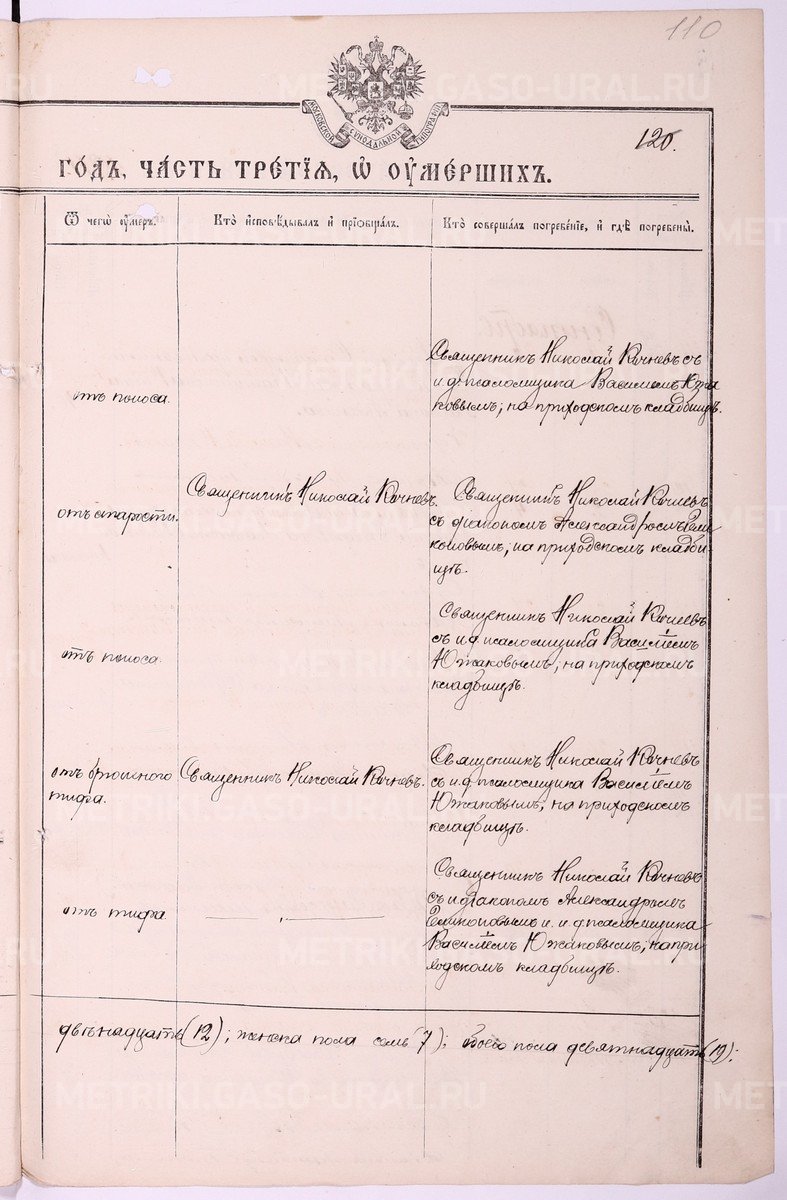 110
МОСКОВСКОЙ СѴНОДАЛЬНОЙ ТИПОГРАФІИ
120.
ГО́ДЪ, ЧА́СТЬ ТРЕ́ТІѦ, Ѡ҆ ОУ҆МЕ́РШИХЪ.
Ѿ чегѡ̀ ᲂу҆́меръ.
Кто̀ и҆сповѣ́дывалъ и҆ прїѡбща́лъ.
Кто̀ соверша́лъ погребе́нїе, и҆ гдѣ̀ погребены̀.
отъ поноса.
Священникъ Николай Кочневъ съ
и. д. псаломщика Василіемъ Южа
ковымъ; на приходскомъ кладбищѣ.
отъ старости.
Священникъ Николай Кочневъ.
Священникъ Николай Кочневъ
съ діакономъ Александромъ
коновымъ; на приходскомъ кладби-
щѣ.
отъ поноса.
Священникъ Николай Кочневъ
съ и. д. псаломщика Василіемъ
Южаковымъ; на приходскомъ
кладбищѣ.
отъ брюшного
тифа.
Священникъ Николай Кочневъ.
Священникъ Николай Кочневъ
съ и. д. псаломщика Василіемъ
Южаковымъ; на приходскомъ
кладбищѣ.
отъ тифа
— „ —
Священникъ Николай Кочневъ
съ діакономъ Александромъ
и. и. д. псаломщика
Василіемъ Южаковымъ; на при
ходскомъ кладбищѣ.
двѣнадцать (12); женска пола семь (7); обоего пола девятнадцать (19);
METRIKI.GASO-URAL.RU